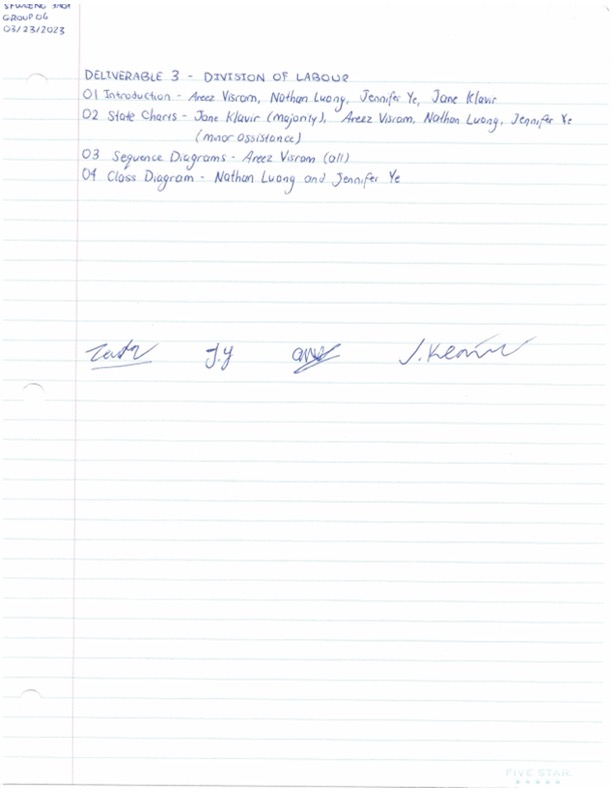 GROUP 06
03/23/2023
DELIVERABLE 3 - DIVISION OF LABOUR
01 Introduction - Areez Visram, Nathan Luong, Jennifer Ye, Jane Klavir
02 State Charts - Jane Klavir (majority), Areez Visram, Nathan Luong, Jennifer Ye
(minor assistance)
03 Sequence Diagrams - Areez Visram (all)
04 Class Diagram - Nathan Luong and Jennifer Ye
J.Y
J. Klavir
FIVE STAR